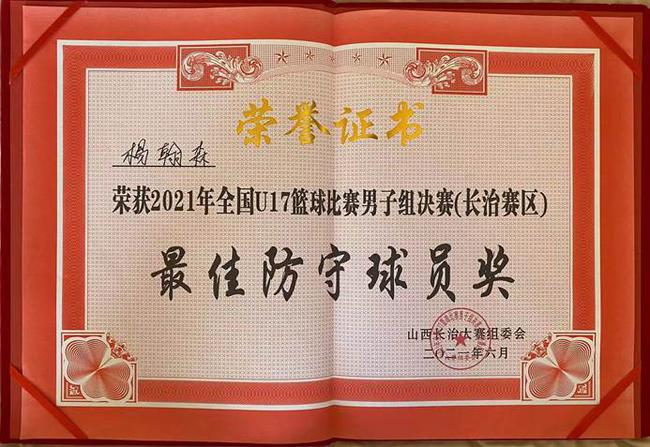 荣誉证书
杨翰森
荣获2021年全国U17篮球比赛男子组决赛(长治赛区)
最佳防守球员奖
山西长治大赛组委会
二〇二一年六月